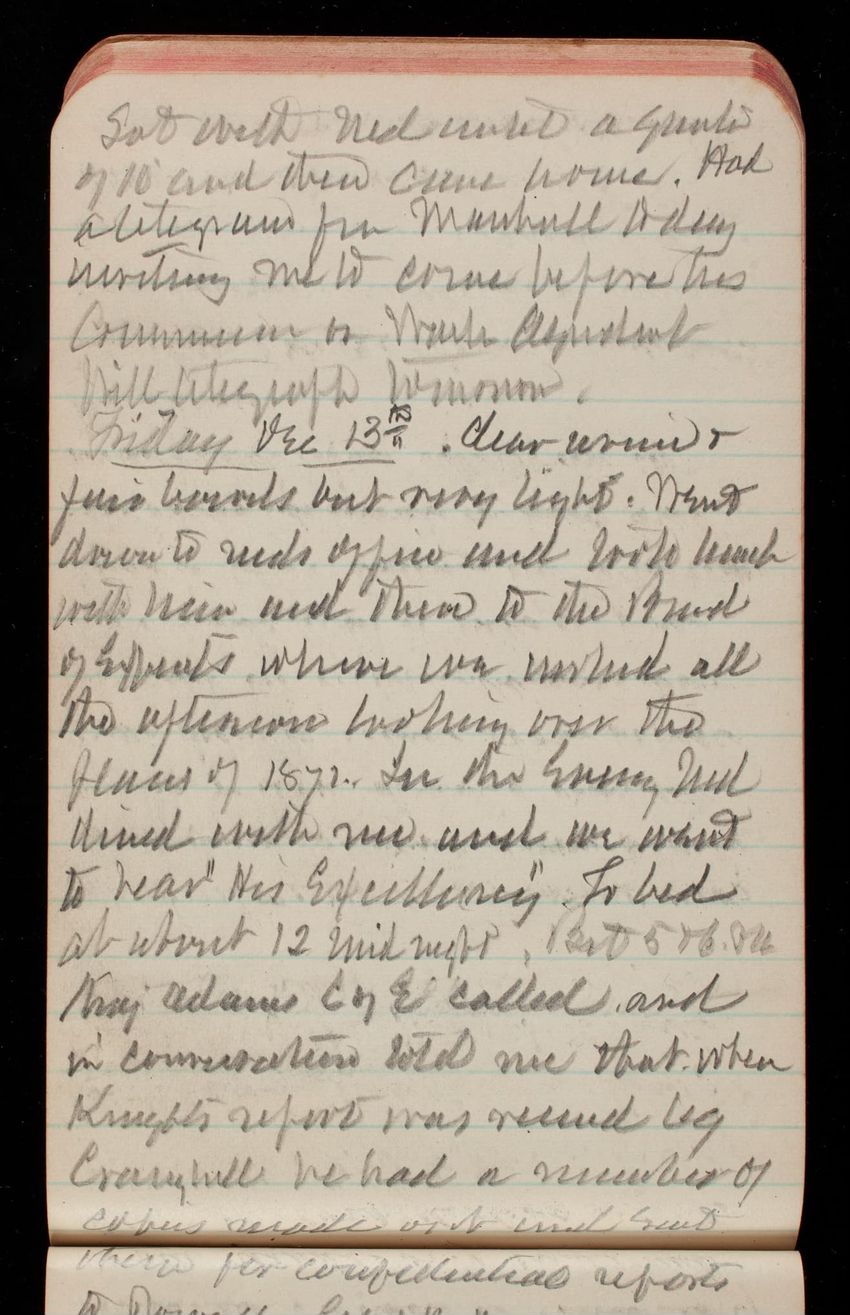 Sat with Ned until a quarter
of 10 and then came home. Had
a telegram from Marshall today
inviting me to come before his
Commission on Wash Aqueduct
Will telegraph tomorrow.
Friday Dec 13th. Clear
fair but very light. Went
down to Neds office and took lunch
with him and then to the Board
of Experts where we worked all
the afternoon looking over the
plans of 1872. In the Evening Ned
dined with me and we went
to hear "His Excellency". To bed
at about 12 Midnight. Bet 5 & 6. PM
Maj Adams C of E called and
in conversation told me that when
Knights report was received by
Craighill he had a number of
copies made out and sent
them for confidential reports
to